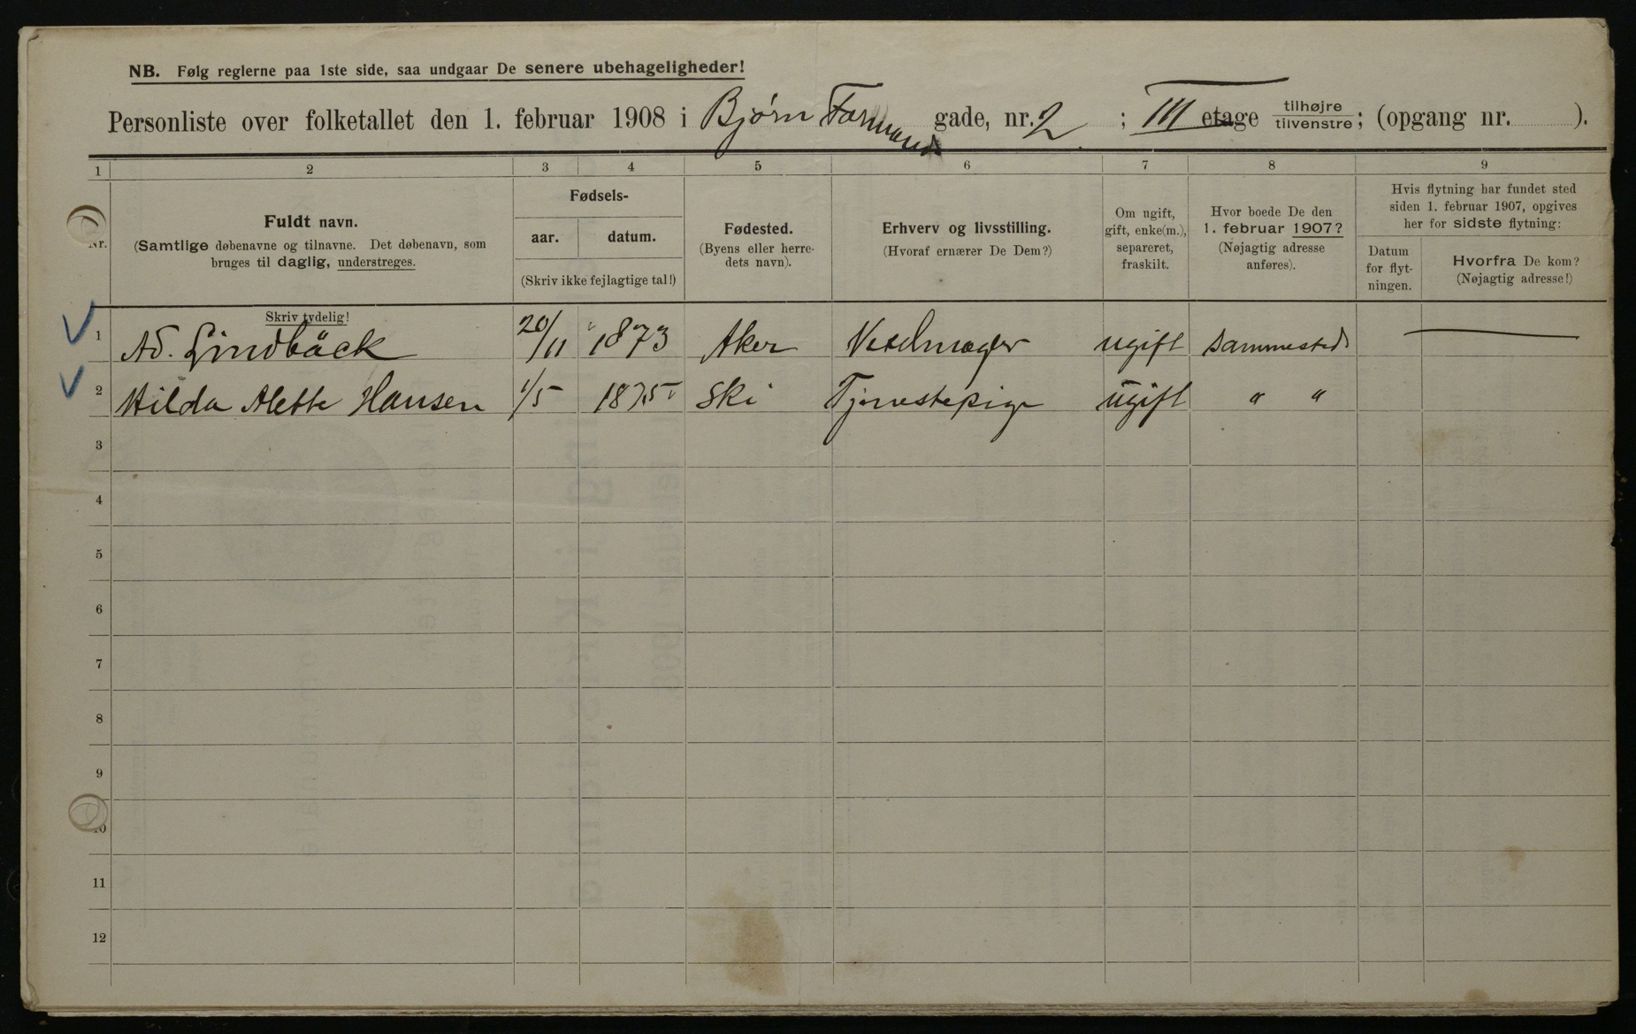 NB. Følg reglerne paa 1ste side, saa undgaar De senere ubehageligheder!
Personliste over folketallet den 1. februar 1908 i Bjørn Farmands gade, nr. 2 ; III etage tilhøjre tilvenstre; (opgang nr. ).
1 2 3 4 5 6 7 8 9
Nr.
Fuldt navn.
(Samtlige døbenavne og tilnavne. Det døbenavn, som
bruges til daglig, understreges.
Skriv tydelig!
Fødsels-
aar. datum.
(Skriv ikke fejlagtige tal!)
Fødested.
(Byens eller herre-
dets navn).
Erhverv og livsstilling.
(Hvoraf ernærer De Dem?)
Om ugift,
gift, enke(m.),
separeret,
fraskilt.
Hvor boede De den
1. februar 1907?
(Nøjagtig adresse
anføres).
Hvis flytning har fundet sted
siden 1. februar 1907, opgives
her for sidste flytning:
Datum
for flyt-
ningen.
Hvorfra De kom?
(Nøjagtig adresse!)
1 Ad. Lindbäck 20/11 1873 Aker Vexelmægler ugift Sammesteds
2 Hilda Alette Hansen 1/5 1875 Ski Tjenestepige ugift " "
3
4
5
6
7
8
9
10
11
12